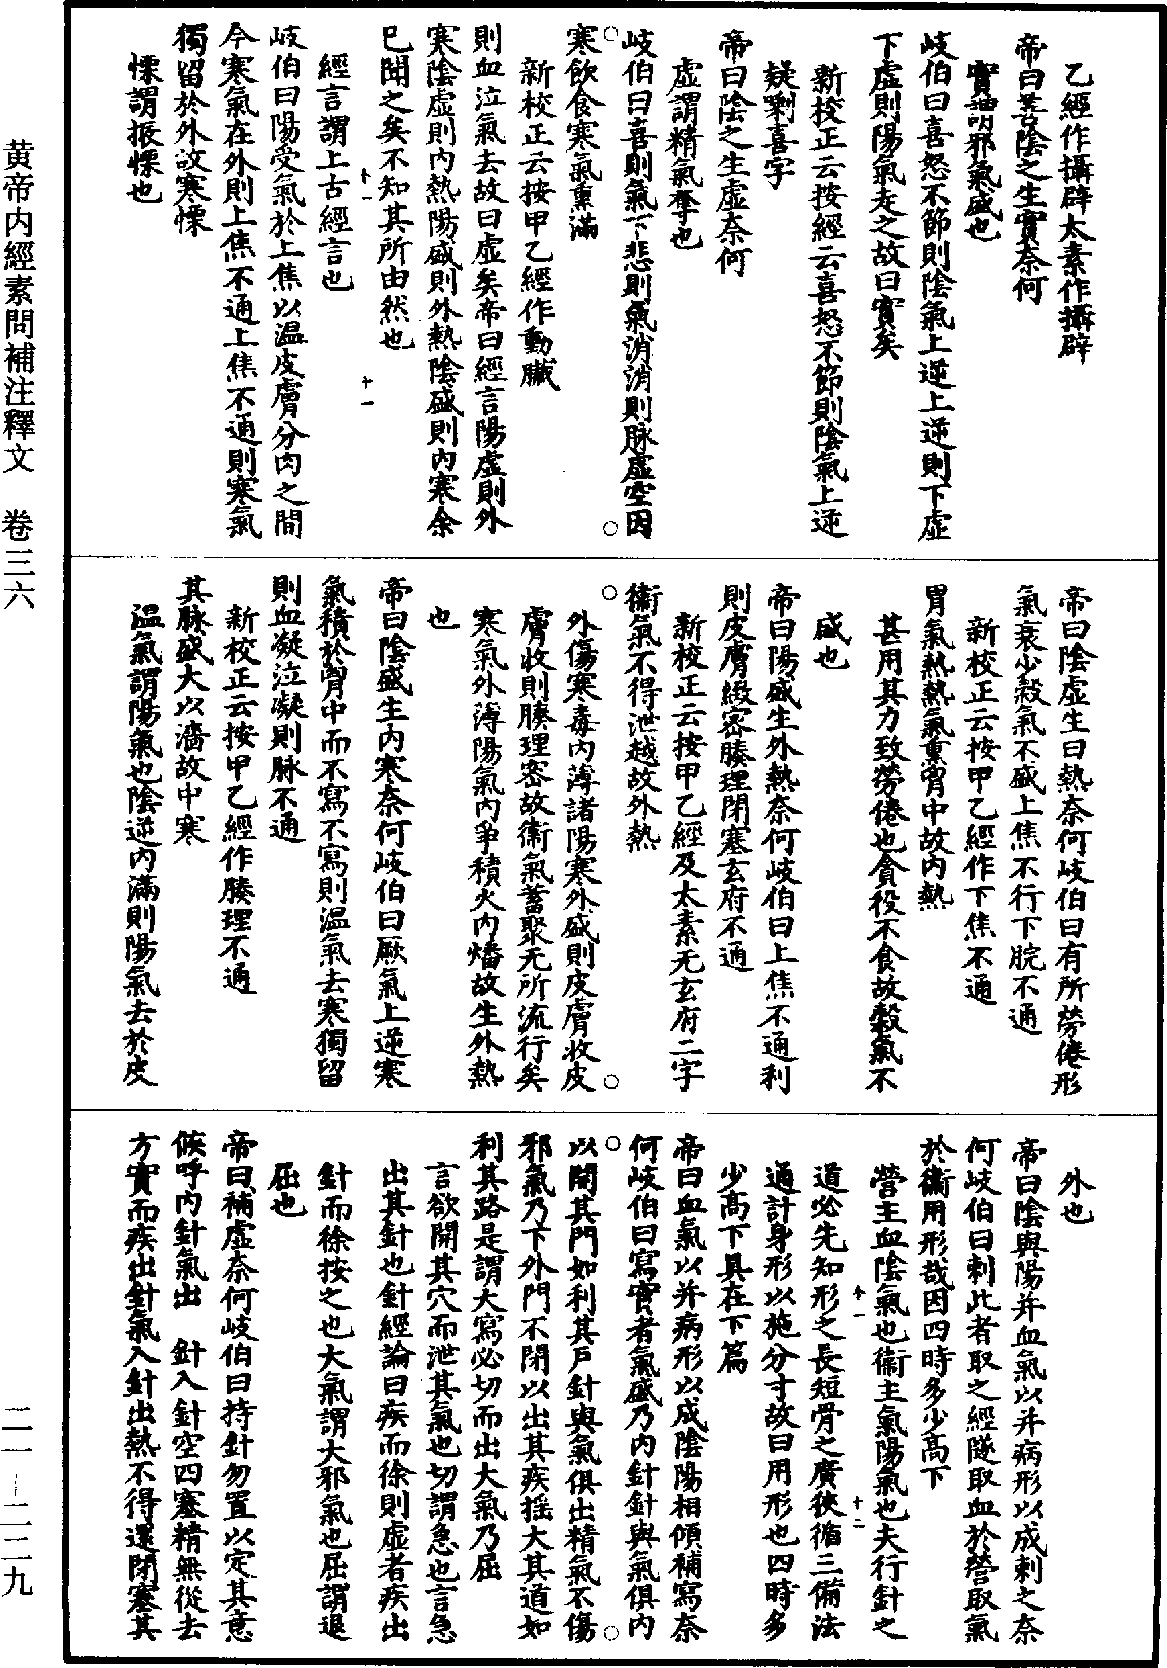 乙經作攝辟太素作攝辟
帝曰善陰之生實奈何
實謂邪氣盛也
岐伯曰喜怒不節則陰氣上逆上逆則下虛
下虛則陽氣走之故曰實矣
新校正云按經云喜怒不節則陰氣上逆
疑剩喜字
帝曰陰之生虛奈何
虛謂精氣奪也
岐伯曰喜則氣下悲則氣消消則脉虛空因
寒飲食寒氣熏滿
新校正云按甲乙經作動臟
則血泣氣去故曰虛矣帝曰經言陽虛則外
寒陰虛則内熱陽盛則外熱陰盛則内寒余
已聞之矣不知其所由然也
十一
十一
經言謂上古經言也
岐伯曰陽受氣於上焦以温皮膚分肉之間
今寒氣在外則上焦不通上焦不通則寒氣
獨留於外故寒慄
慄謂振慄也
帝曰陰虛生曰熱奈何岐伯曰有所勞倦形
氣衰少穀氣不盛上焦不行下脘不通
新校正云按甲乙經作下焦不通
胃氣熱熱氣熏胷中故内熱
甚用其力致勞倦也貪役不食故穀氣不
盛也
帝曰陽盛生外熱奈何岐伯曰上焦不通利
則皮膚緻密腠理閉塞玄府不通
新校正云按甲乙經及太素无玄府二字
衛氣不得泄越故外熱
外傷寒毒内薄諸陽寒外盛則皮膚收皮
膚收則腠理密故衛氣蓄聚无所流行矣
寒氣外薄陽氣内爭積火内燔故生外熱
也
帝曰陰盛生内寒奈何岐伯曰厥氣上逆寒
氣積於胷中而不寫不寫則温氣去寒獨留
則血凝泣凝則脉不通
新校正云按甲乙經作腠理不通
其脉盛大以濇故中寒
温氣謂陽氣也陰逆内滿則陽氣去於皮
外也
帝曰陰與陽并血氣以并病形以成刺之奈
何岐伯曰刺此者取之經隧取血於營取氣
於衛用形哉因四時多少高下
營主血陰氣也衛主氣陽氣也夫行針之
十一
十二
道必先知形之長短骨之廣狹循三備法
通計身形以施分寸故曰用形也四時多
少高下具在下篇
帝曰血氣以并病形以成陰陽相傾補寫奈
何岐伯曰寫實者氣盛乃内針針與氣俱内
以開其門如利其戶針與氣俱出精氣不傷
邪氣乃下外門不閉以出其疾揺大其道如
利其路是謂大寫必切而出大氣乃屈
言欲開其穴而泄其氣也切謂急也言急
出其針也針經論曰疾而徐則虛者疾出
針而徐按之也大氣謂大邪氣也屈謂退
屈也
帝曰補虛奈何岐伯曰持針勿置以定其意
候呼内針氣出 針入針空四塞精無從去
方實而疾出針氣入針出熱不得還閉塞其
黄帝内經素問補注釋文 卷三六
二一—二二九